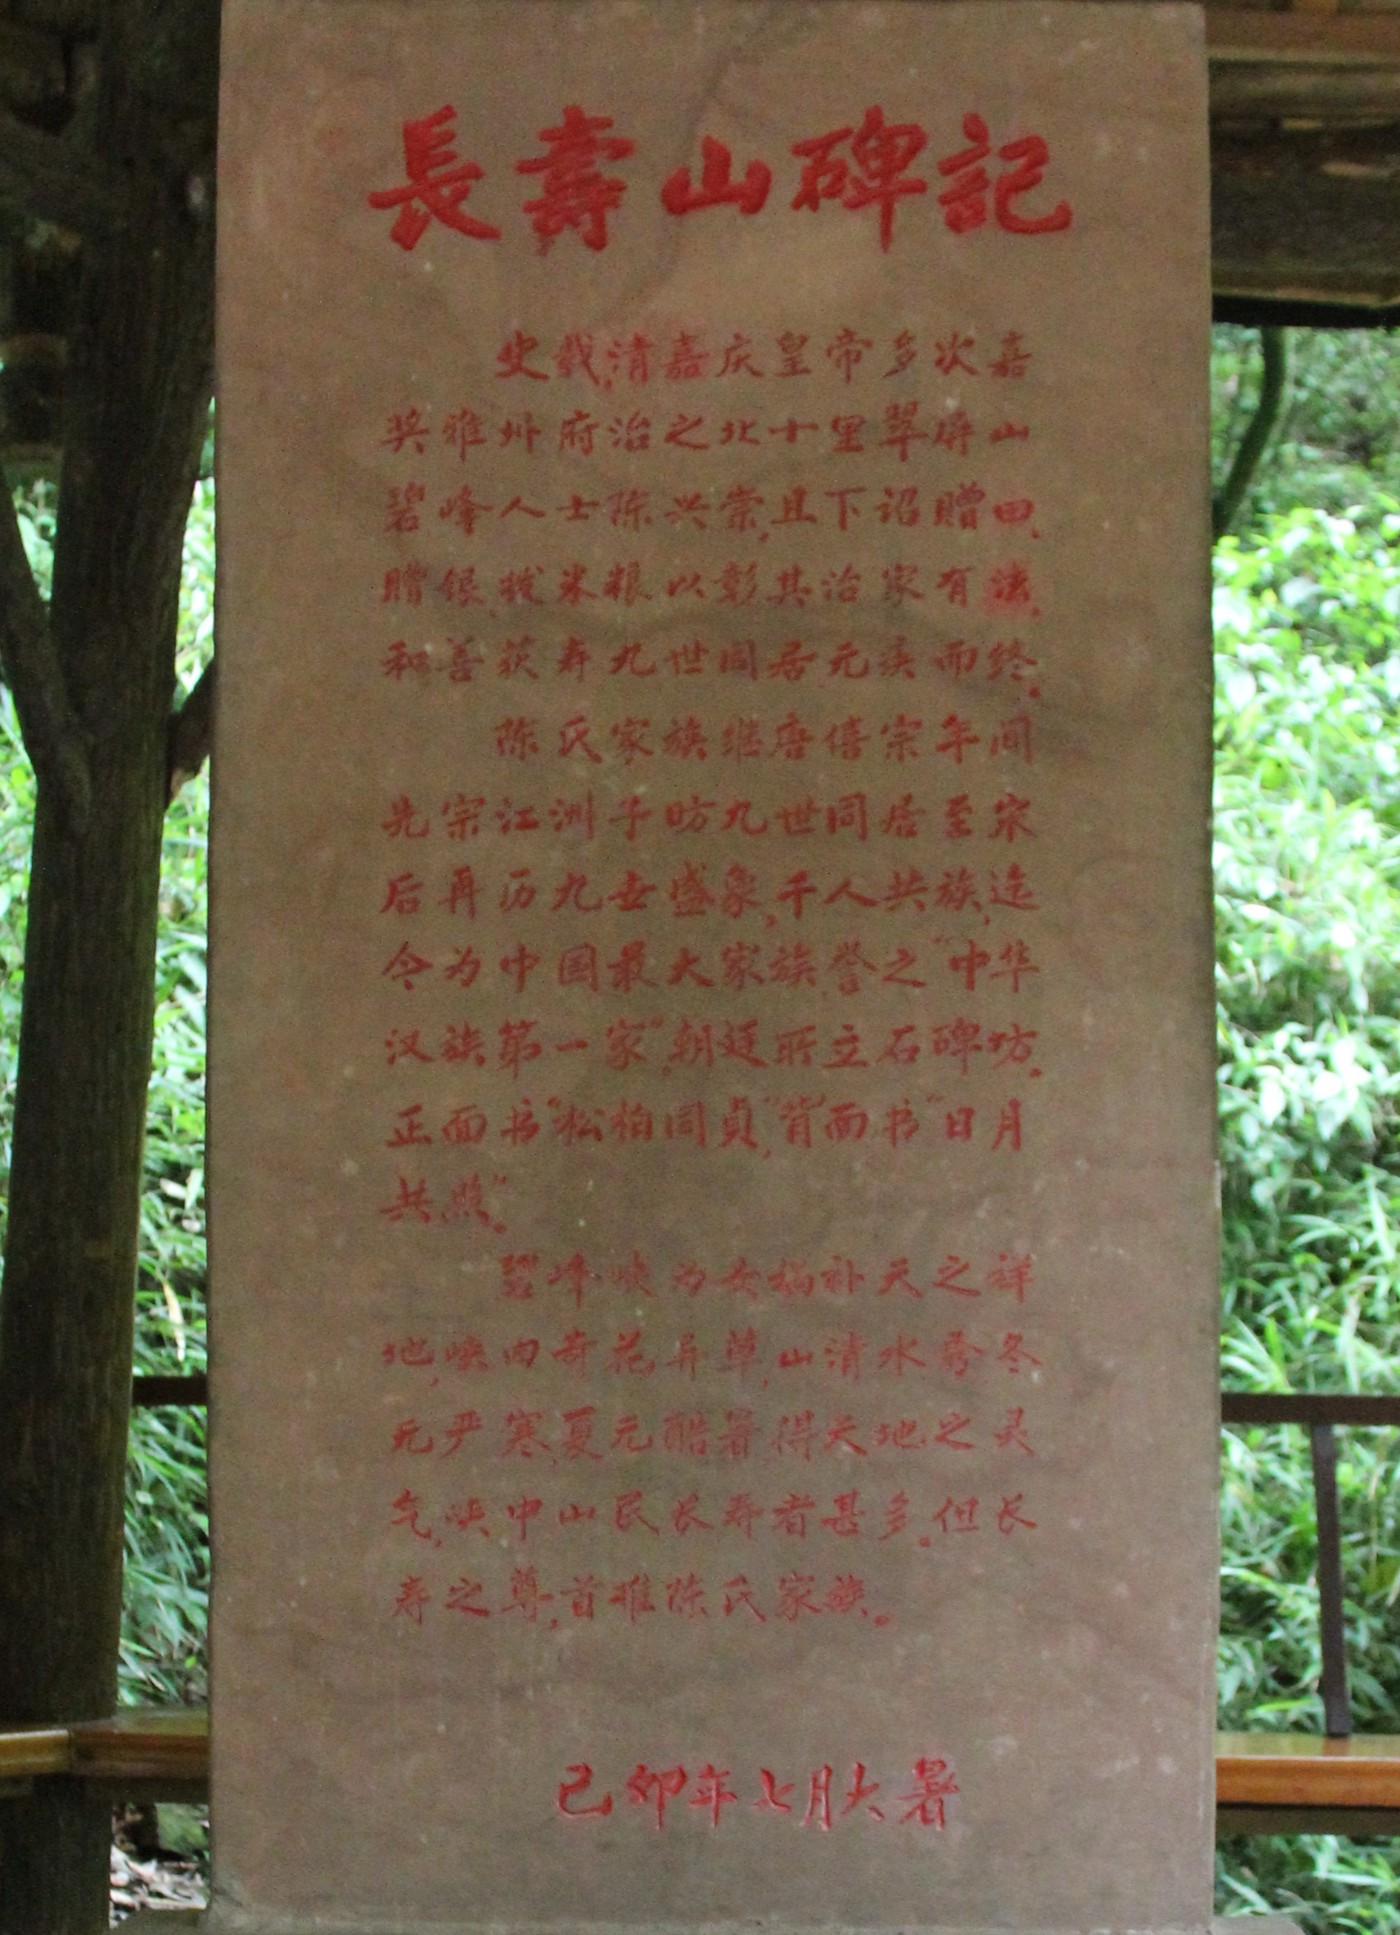 長壽山碑記
史载,清嘉庆皇帝多次嘉
奖雅州府治之北十里翠屏山
碧峰人士陈兴崇,且下诏赠田、
赠银、拨米粮以彰其治家有法、
和善获寿九世同居无疾而终。
陈氏家族继唐僖宗年间
先宗江洲子昉九世同居至宋
后再历九世盛象,千人共族,迄
今为中国最大家族,誉之“中华
汉族第一家”,朝廷所立石碑坊。
正面书“松柏同貞”,背面书“日月
共照”。
碧峰峡为女娲补天之祥
地,峡内奇花异草,山清水秀冬
无严寒,夏无酷暑,得天地之灵
气,峡中山民长寿者甚多。但长
寿之尊,首推陈氏家族。
己卯年七月大暑